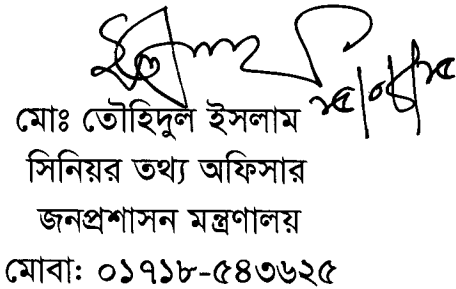 মোঃ তৌহিদুল ইসলাম
সিনিয়র তথ্য অফিসার
জনপ্রশাসন মন্ত্রণালয়
মোবা: ০১৭১৮-৫৪৩৬২৫